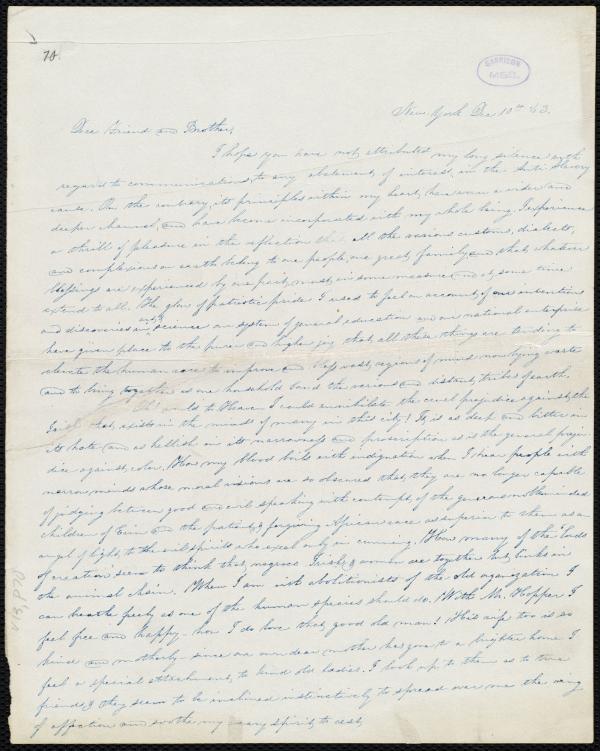 70
GARRISON
MSS.
New York Dec 10th 43.
Dear Friend and Brother,
I hope you have not attributed my long silence with
regard to communications, to any abatement of interest, in the Anti Slavery
cause. On the contrary, its principles within my heart, have worn a wider and
deeper channel, and have become incorporated with my whole being. I experience
a thrill of pleasure in the reflection that all the various customs, dialects,
and complexions on earth belong to one people, one great family, and that whatever
blessings are experienced by one part, must in some measure and at some time
extend to all. The glow of patriotic pride I used to feel on account of our inventions
and discoveries in science our system of general education and our national enterprise
have given place to the purer and higher joy that all these things are tending to
elevate the human race to improve and bless vast regions of mind now lying waste
and to bring together as one household band the various and distant tribes of earth.
would to Heaven I could annihilate the cruel prejudice against the
Irish that exists in the minds of many in this city! It is as deep and bitter in
its hate and as hellish in its narrowness and proscription as is the general preju-
dice against color. How my blood boils with indignation when I hear people with
narrow minds whose moral visions are so obscured that they are no longer capable
of judging between good and evil speaking with contempt of the generous minded
children of Erin and the patient & forgiving African race as superior to them as an
angel of light, to the evil spirits who excel only in cunning. How many of the "lords
of creation" seem to think that negroes Irish & women are together but links in
the animal chain. When I am with abolitionists of the old organization I
can breathe freely as one of the human species should do. With Mr. Hopper I
feel free and happy. how I do love that good old man! His wife too is so
kind and motherly since our own dear mother has gone to a brighter home I
feel a special attachment to kind old ladies. I look up to them as to true
friends & they seem to be inclined instinctively to spread over me the wing
of affection and soothe my weary spirit to rest,